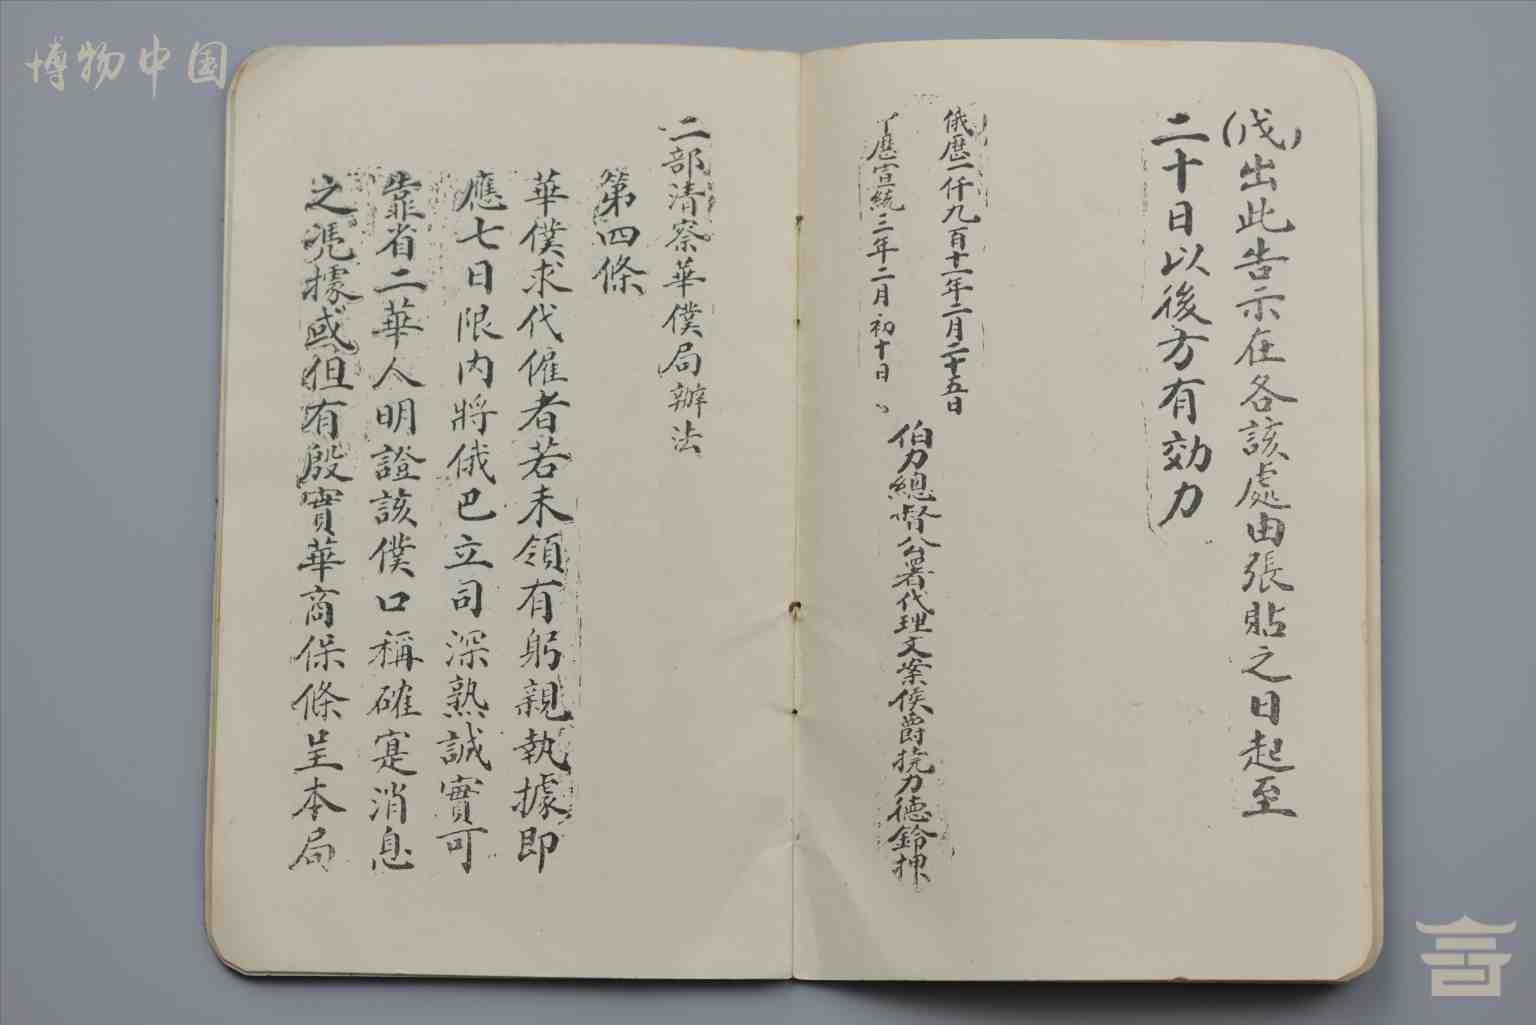 博物中国
(戊)出此告示在各該處由張貼之日起至
二十日以後方有効力
俄歷一仟九百十一年二月二十五日
歷宣統三年二月初十日
伯力總督公署代理文案侯爵撓力德鈴押
二部清察華僕局辦法
第四條
華僕求代僱者若未領有躬親執據即
應七日限内將俄巴立司深熟誠實可
靠省二華人明證該僕口稱確寔消息
之凴據或但有殷實華商保條呈本局